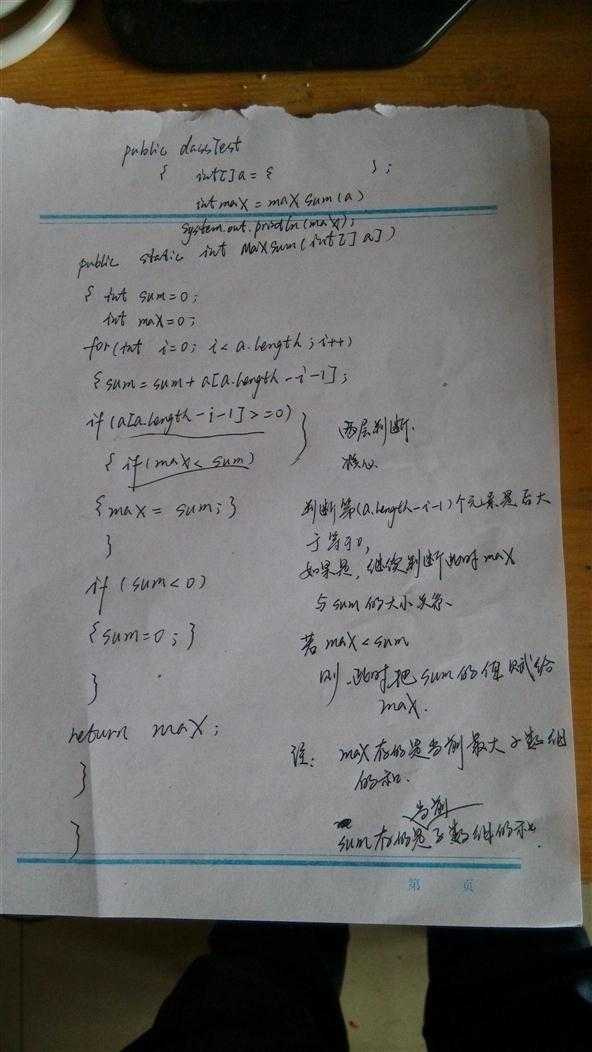 public classTest
{ int[] a = { };
int max = maxsum(a)
System.out.println(max);
public static int Maxsum(int[] a])
{ int sum=0;
int max=0;
for(int i=0; i<a.length; i++)
{sum=sum+a[a.length-i-1];
if(a[a.length-i-1]>=0)
{ if(max<sum)
两层判断.
核心.
{max = sum;}
}
if (sum<0)
{sum=0;}
}
return max;
}
}
判断第(a.length-i-1)个元素是否大
于等于0,
如果是,继续判断此时max
与sum的大小关系.
若max<sum
则.此时把sum的值赋给
max.
注: max存的是当前最大子数组
的和.
当前
sum存的是子数组的和.
第 页